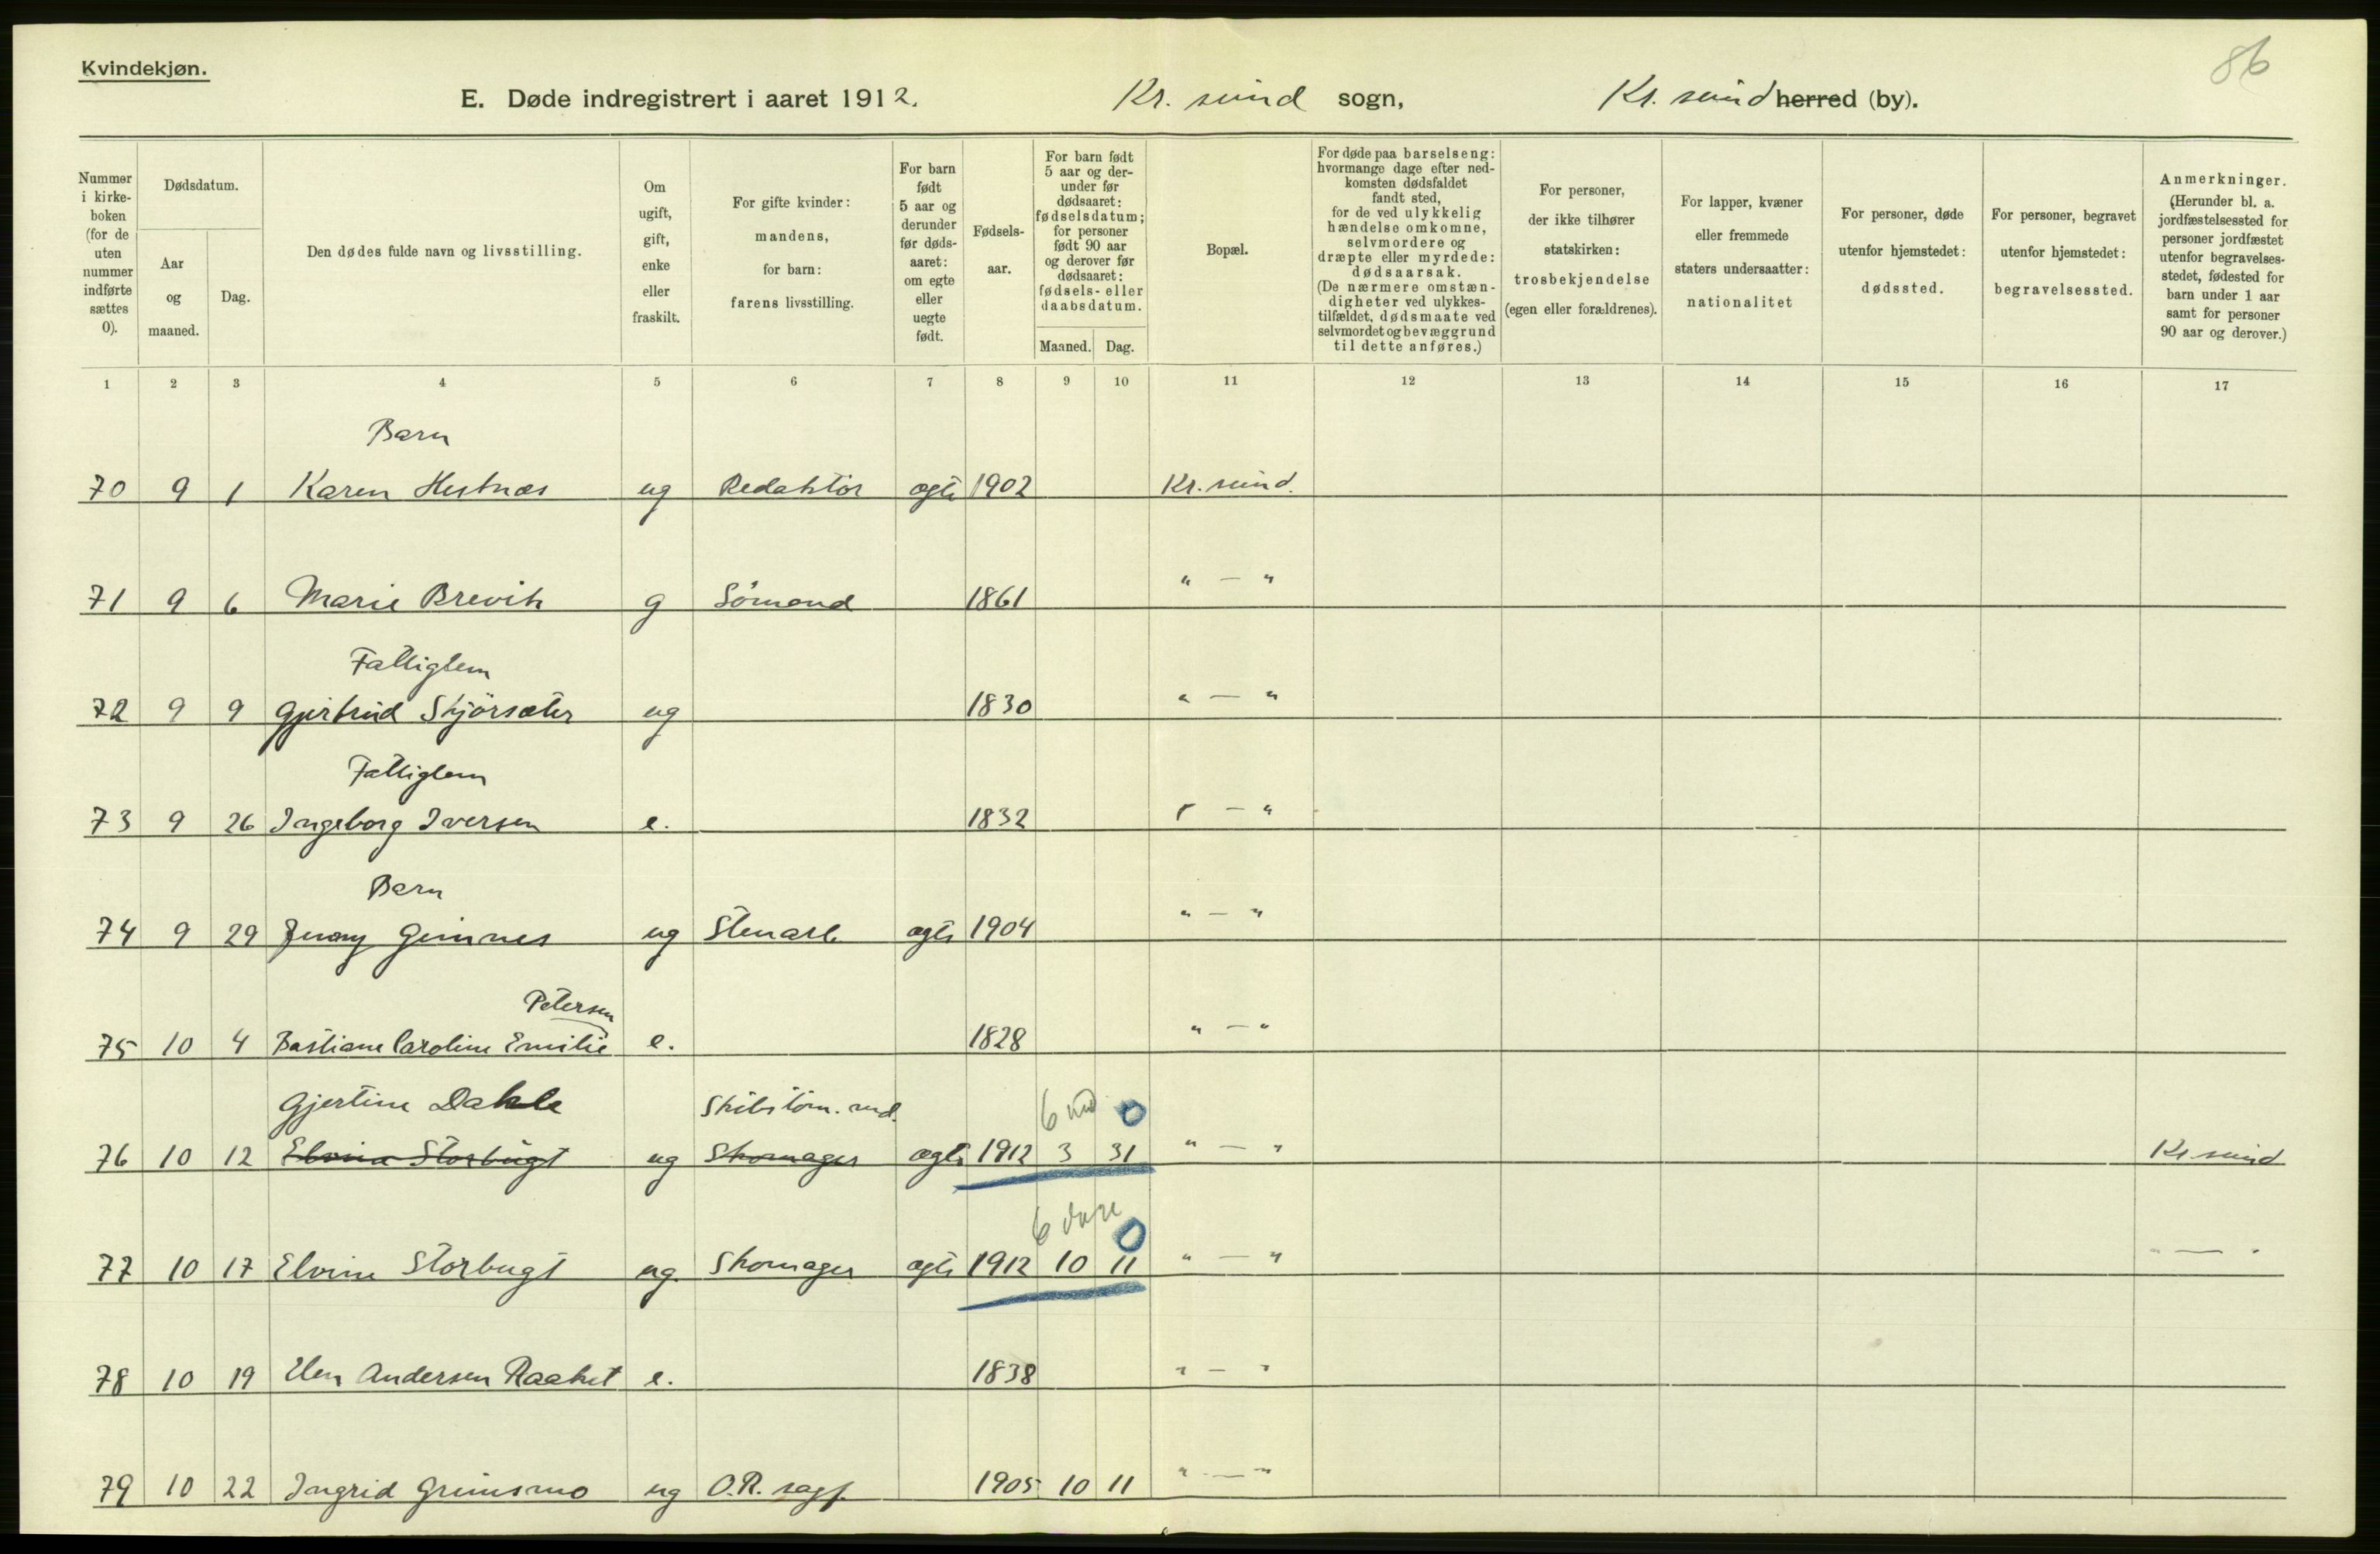 86
Kvindekjøn.
E. Døde indregistrert i aaret 1912. Kr. sund sogn, Kr. sund herred (by).
Nummer i kirke-boken (for de uten nummer indførte sættes 0).
Dødsdatum.
Aar og maaned.
Dag.
Den dødes fulde navn og livsstilling.
Om ugift, gift, enke eller fraskilt.
For gifte kvinder: mandens, for barn: farens livsstilling.
For barn født 5 aar og derunder før døds-aaret: om egte eller uegte født.
Fødsels-aar.
For barn født 5 aar og der-under før dødsaaret: fødselsdatum; for personer født 90 aar og derover før dødsaaret: fødsels- eller daabsdatum.
Maaned. Dag.
Bopæl.
For døde paa barselseng: hvormange dage efter ned-komsten dødsfaldet fandt sted, for de ved ulykkelig hændelse omkomne, selvmordere og dræpte eller myrdede: dødsaarsak. (De nærmere omstæn-digheter ved ulykkes-tilfældet, dødsmaate ved selvmordet og bevæggrund til dette anføres.)
For personer, der ikke tilhører statskirken: trosbekjendelse (egen eller forældrenes).
For lapper, kvæner eller fremmede staters undersaatter: nationalitet
For personer, døde utenfor hjemstedet: dødssted.
For personer, begravet utenfor hjemstedet: begravelsessted.
Anmerkninger. (Herunder bl. a. jordfæstelsessted for personer jordfæstet utenfor begravelses-stedet, fødested for barn under 1 aar samt for personer 90 aar og derover.)
1 2 3 4 5 6 7 8 9 10 11 12 13 14 15 16 17
Barn
70 9 1 Karen Hestnæs ug Redaktör ægte 1902 Kr. sund.
71 9 6 Marie Brevik g Sömand 1861 " — "
Fattiglem
72 9 9 Gjertrud Skjörsæter ug 1830 " — "
Fattiglem
73 9 26 Ingeborg Iversen e. 1832 " — "
Barn
74 9 29 Jenny Gimnes ug Stenarb. ægte 1904 " — "
Petersen
75 10 4 Bastiane Caroline Emilie e. 1828 " — "
Gjertine Dahle Skibstöm. md. 6 md 0
76 10 12 Elvina Storbugt ug Skomager ægte 1912 3 31 " — " Kr sund
6 dage 0
77 10 17 Elvine Storbugt ug. Skomager ægte 1912 10 11 " — " " — "
78 10 19 Elen Andersen Raaket e. 1838 " — "
79 10 22 Ingrid Grimsmo ug O.R. sagf. 1905 10 11 " — "